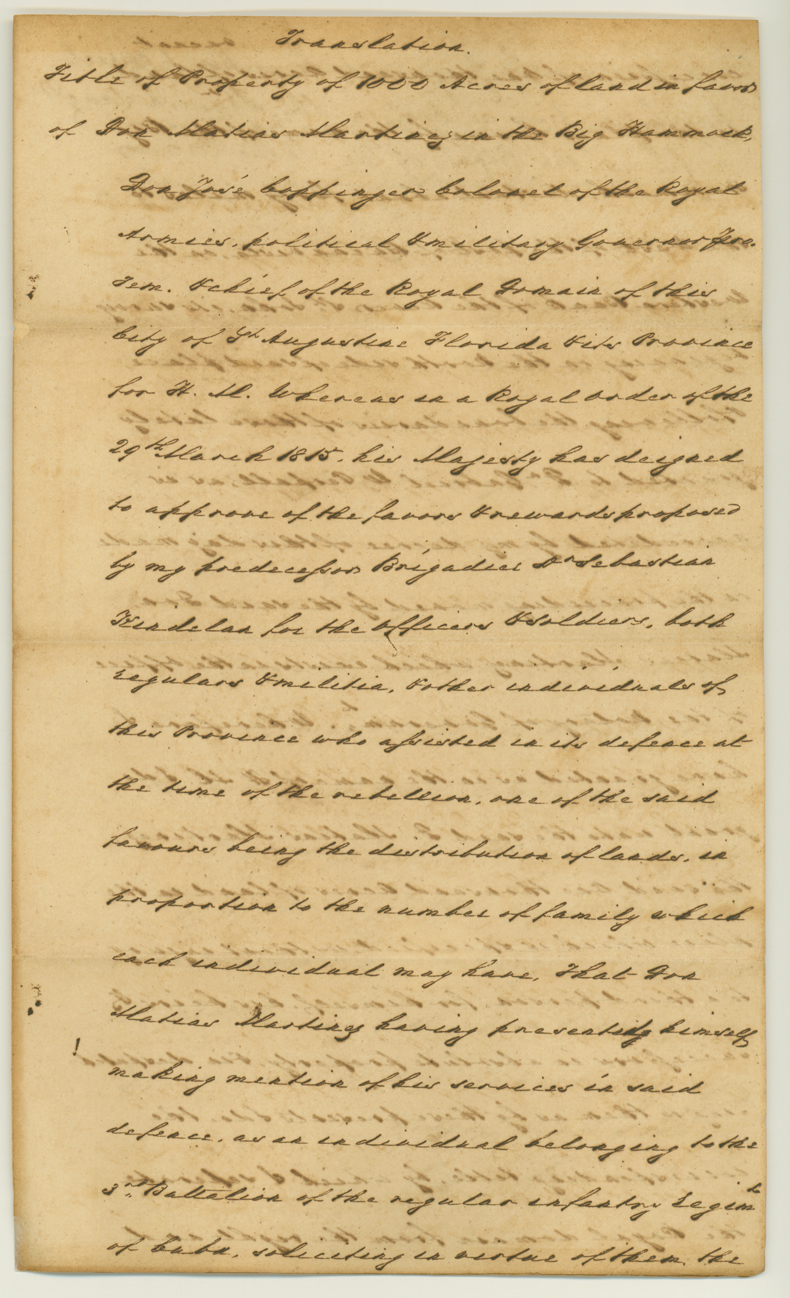 Translation.
Title of Property of 1000 Acres of land in favor
of Don Matias Martinez in the Big Hammock,
Don José Coppinger Colonel of the Royal
Armies, political & military Governor Pro.
Tem. & chief of the Royal Domain of this
City of St Augustine Florida & its Province
for H. M. Whereas in a Royal order of the
29th March 1815. his Majesty has deigned
to approve of the favors & rewards proposed
by my predecessor Brigadier Dn Sebastian
Kindelan for the officers & soldiers, both
regulars & militia, & other individuals of
this Province who assisted in its defence at
the time of the rebellion, one of the said
favours being the distribution of lands, in
proportion to the number of family which
each individual may have, That Don
Matias Martinez having presented himself
making mention of his services in said
defence, as an individual belonging to the
3rd Battalion of the regular infantry Regimt
of Cuba, soliciting in virtue of them, the